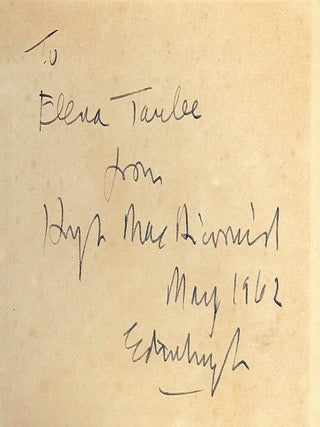 To
Elena Taube
from
Hugh MacDiarmid
May 1962
Edinburgh